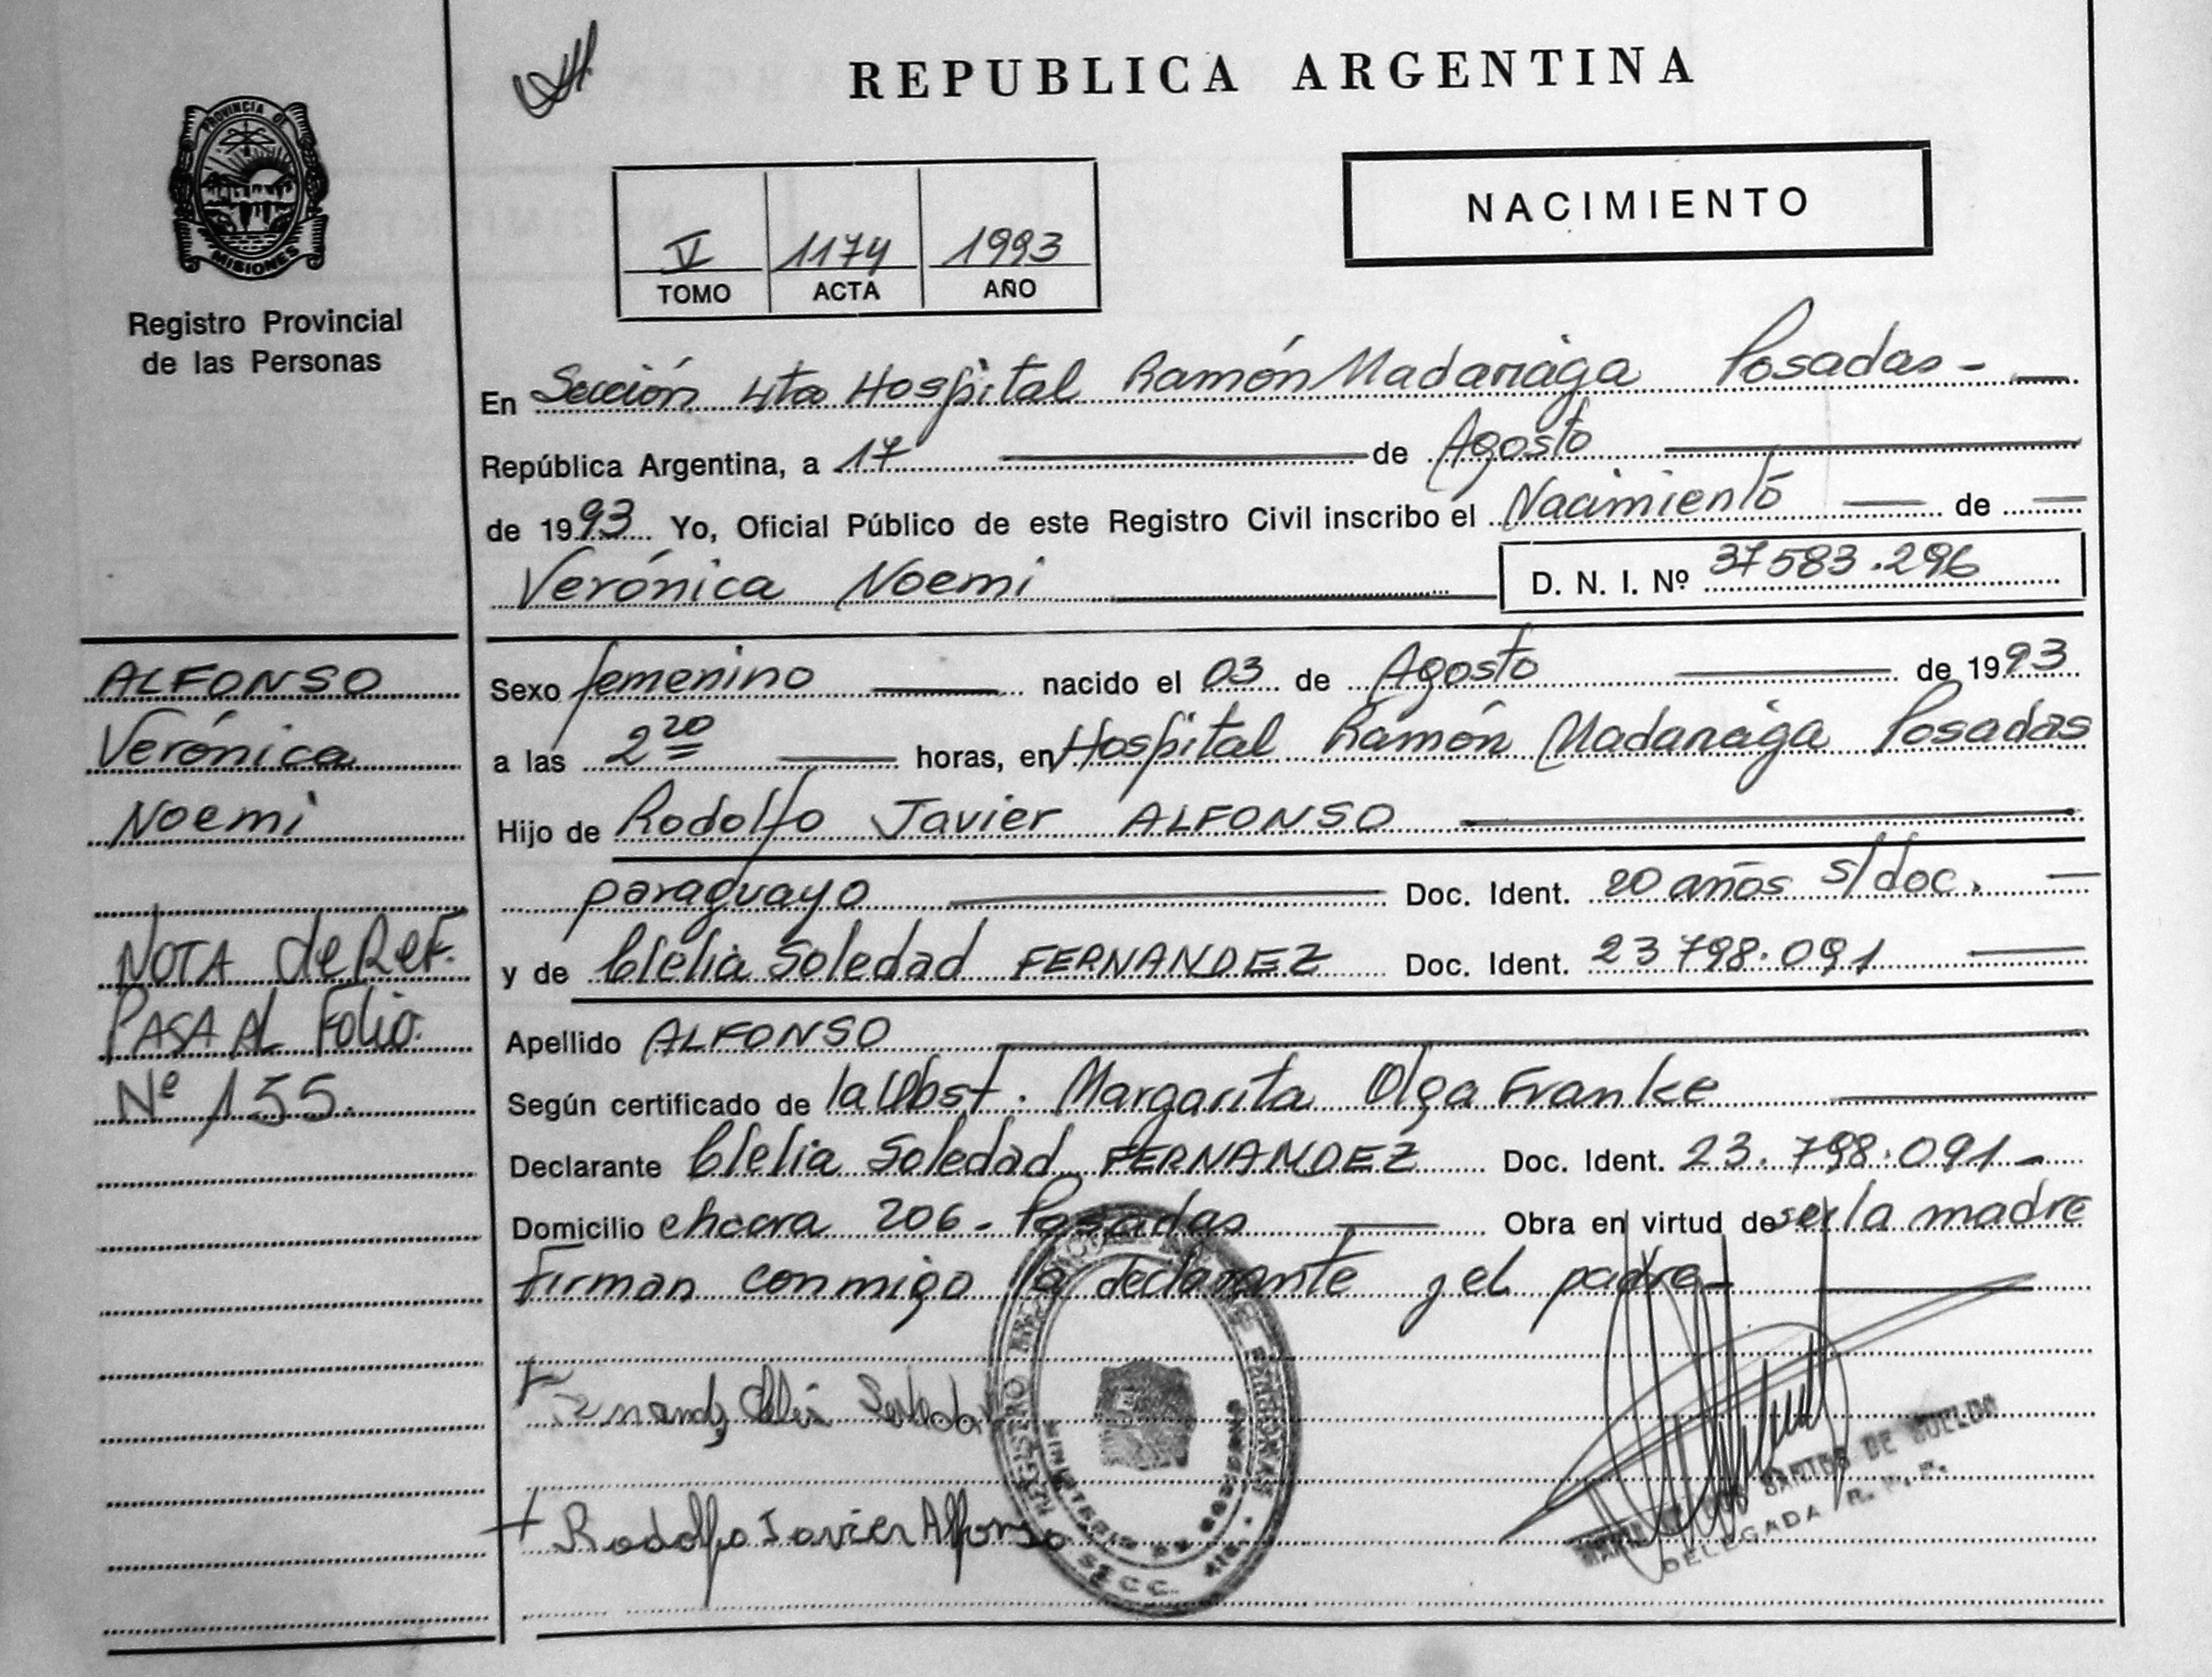 PROVINCIA DE
MISIONES
Registro Provincial
de las Personas
REPUBLICA ARGENTINA
NACIMIENTO
V 1174 1993
TOMO ACTA AÑO
En Sección 4ta Hospital Ramón Madariaga Posadas -
República Argentina, a 17 de Agosto
de 1993 Yo, Oficial Público de este Registro Civil inscribo el Nacimiento de
Verónica Noemi D. N. I. Nº 37583.296
ALFONSO
Verónica
Noemi
NOTA de Ref.
PASA AL Folio.
Nº 155.
Sexo femenino nacido el 03 de Agosto de 1993
a las 2 20 horas, en Hospital Ramón Madariaga Posadas
Hijo de Rodolfo Javier ALFONSO
paraguayo Doc. Ident. 20 años s/doc.
y de Clelia Soledad FERNANDEZ Doc. Ident. 23 798.091
Apellido ALFONSO
Según certificado de la Obst. Margarita Olga Franke
Declarante Clelia Soledad FERNANDEZ Doc. Ident. 23.798.091-
Domicilio chacra 206- Posadas Obra en virtud de ser la madre
Firman conmigo la declarante y el padre-
Soledad
Rodolfo Javier Alfonso
REGISTRO
PERSONAS
MINISTERIO DE GOBIERNO
SECC. 4ta.
SANTOS DE
DELEGADA R. P. P.